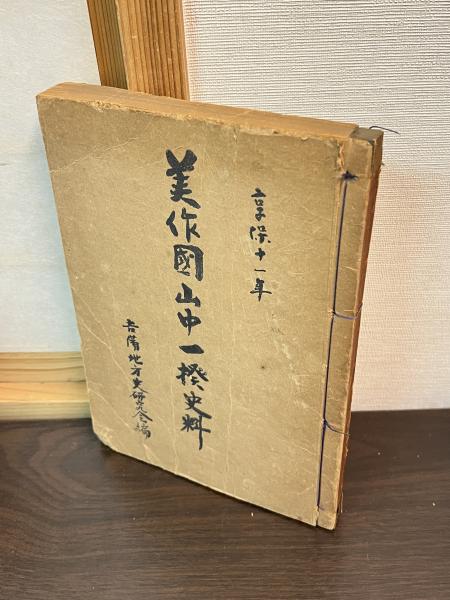 享保十一年
美作國山中一揆史料
吉備地方史研究会編